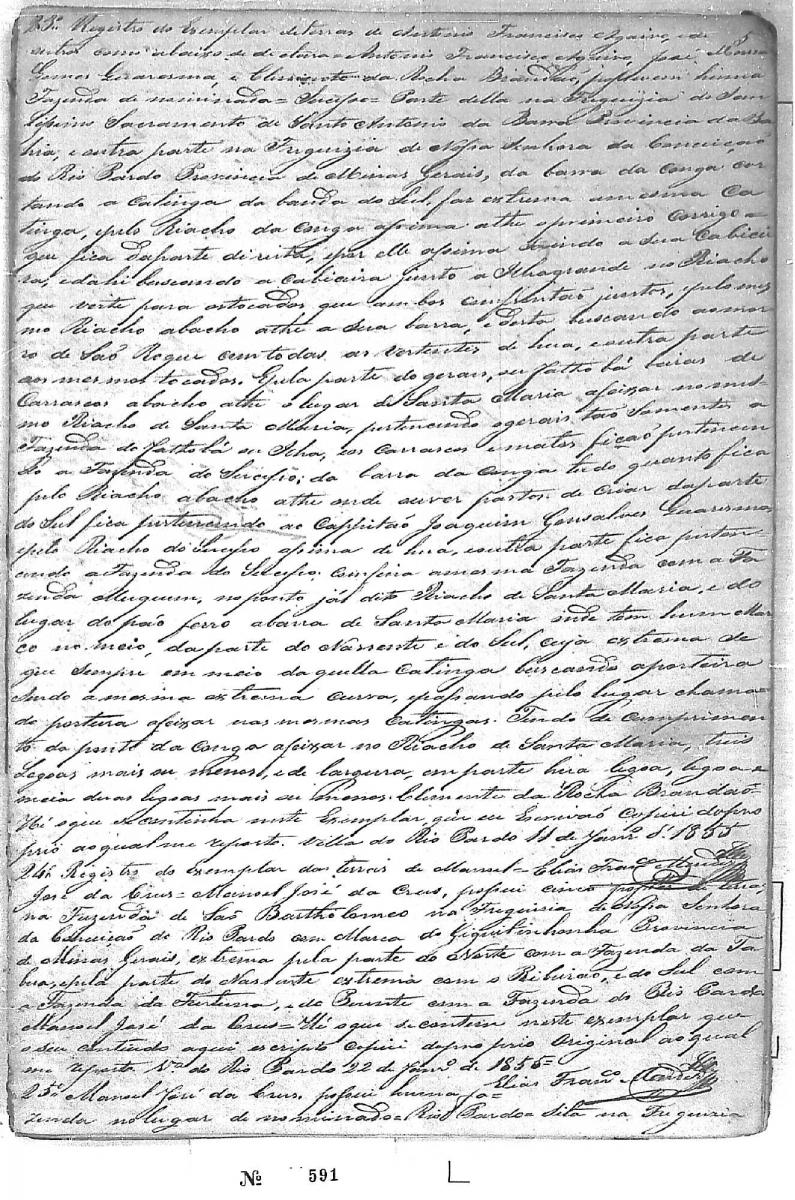 23º Registro do Exemplar de terras de Antonio Francisco Aguiar, e de
outros como abaixo se declara = Antonio Francisco Aguiar, José Maria
Gomes e Clemente da Rocha Brandão, possuem huma
Fazenda denominada = Sucesso = Parte della na Freguizia do San
tissimo Sacramento de Santo Antonio da Barra Provincia da Ba
hia, e outra parte na Freguizia de Nossa Senhora da Conceicaõ
do Rio Pardo Provincia de Minas Geraes, da barra da Conga cor
tando a Catinga da banda do Sul, faz extrema a mesma Ca
tinga, e pelo Riacho da Conga assima athe o primeiro Corrigo =
que fica da parte direita, e por elle assima a sua Cabicei
ra, e dahi buscando a Cabiceira junto a Ilha grande no Riacho
que verte para os tocados que ambos juntos, e pelo mes
mo Riacho abacho athé a sua barra, e desta buscando ao mor
ro de Saõ Roque com todas as vertentes de hua, e outra parte
aos mesmos tocados. E pela parte do gerais, ou Jathobá beiras de
Carrascos abacho athe o lugar de Santa Maria afeixar no mes-
mo Riacho de Santa Maria, pertencendo o gerais taõ Somente a
Fazenda do Jathobá ou Ilha, e os Carrascos e mates ficaõ pertencen
do a Fazenda do Sucesso; da barra da Conga tudo quanto fica
pelo Riacho abacho athe onde ouver pastos de criar da parte
do Sul fica pertencendo ao Cappitaõ Joaquim Gonsalves
e pelo Riacho do Sucesso assima de hua, e outra parte fica perten-
cendo a Fazenda do Sucesso; confina a mesma Fazenda com a Fa
zenda Muquem, no ponto já dito Riacho de Santa Maria, e do
lugar do páo ferro a barra de Santa Maria onde tem hum Mar
co no meio, da parte do Nascente e do Sul, cuja extrema se
gue sempre em meio daquella Catinga buscando a porteira
a mesma extrema curva, e passando pelo lugar chama-
do afeixar nas mesmas Catingas. Tendo de comprimen
to do ponto da Conga afeixar no Riacho de Santa Maria, tres
Legoas mais ou menos, e de largura, em parte hua legoa, legoa e
meia duas legoas mais ou menos. Clemente da Rocha Brandaõ =
Hé o que se continha neste Exemplar, que eu Escrivaõ Copiei do pro
prio ao qual me reporto. Villa do Rio Pardo 11 de Janrº d'1855
24º Registro do exemplar das terras de Manoel = Elias Franco
José da Crus = Manoel José da Crus, possui cinco de terra,
na Fazenda de Saõ Bartholomeo na Freguizia de Nossa Senhora
da Conceiçaõ do Rio Pardo Com Marca do Giquitinhonha Provincia
de Minas Gerais, extrema pela parte do Norte com a Fazenda da Ta
bua, e pela parte do Nascente extrema com o Ribeiraõ, e do Sul com
a Fazenda da Fortuna, e do Poente com a Fazenda do Rio Pardo
Manoel José da Crus = Hé o que se contem neste exemplar que
o seu contiudo aqui escripto Copiei do proprio Original ao qual
me reporto Vª do Rio Pardo 22 de Janrº de 1855 =
25º Manoel José da Crus, possui huma Fa- Elias Franco
zenda no lugar denominado = Rio Pardo = Sita na Freguizia
Nº 591